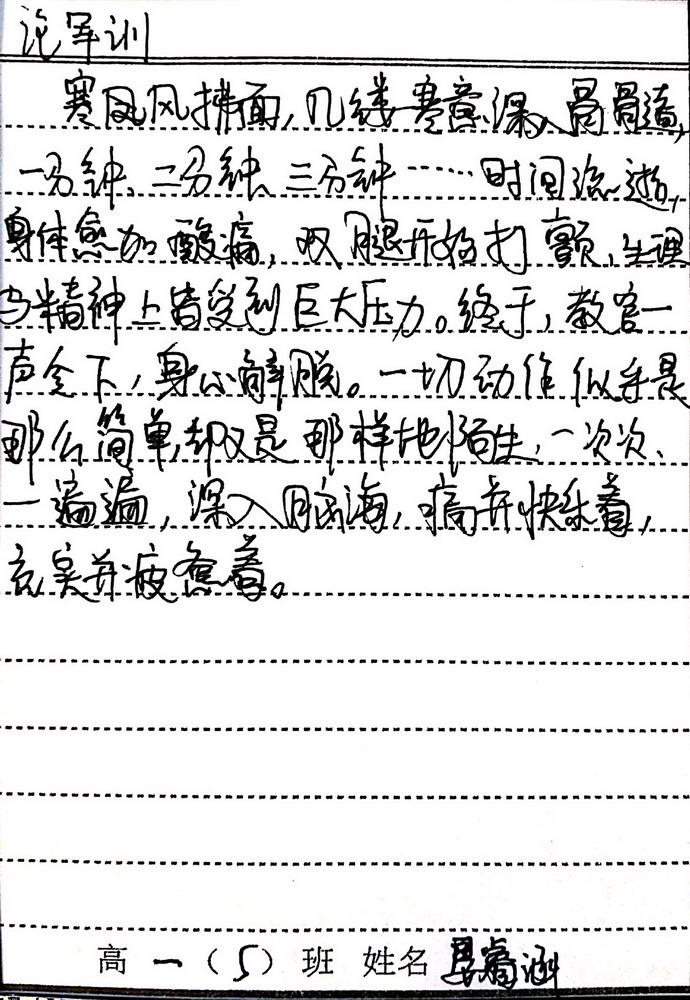 论军训
寒风风拂面，几缕寒意深入骨骨道，
一分钟、二分钟、三分钟……时间流逝，
身体愈加酸痛，双腿开始打颤，生理
与精神上皆受到巨大压力。终于，教官一
声令下，身心解脱。一切动作似乎是
那么简单，却又是那样地陌生，一次次、
一遍遍，深入脑海，痛并快乐着，
充实并疲惫着。
高一（5）班 姓名